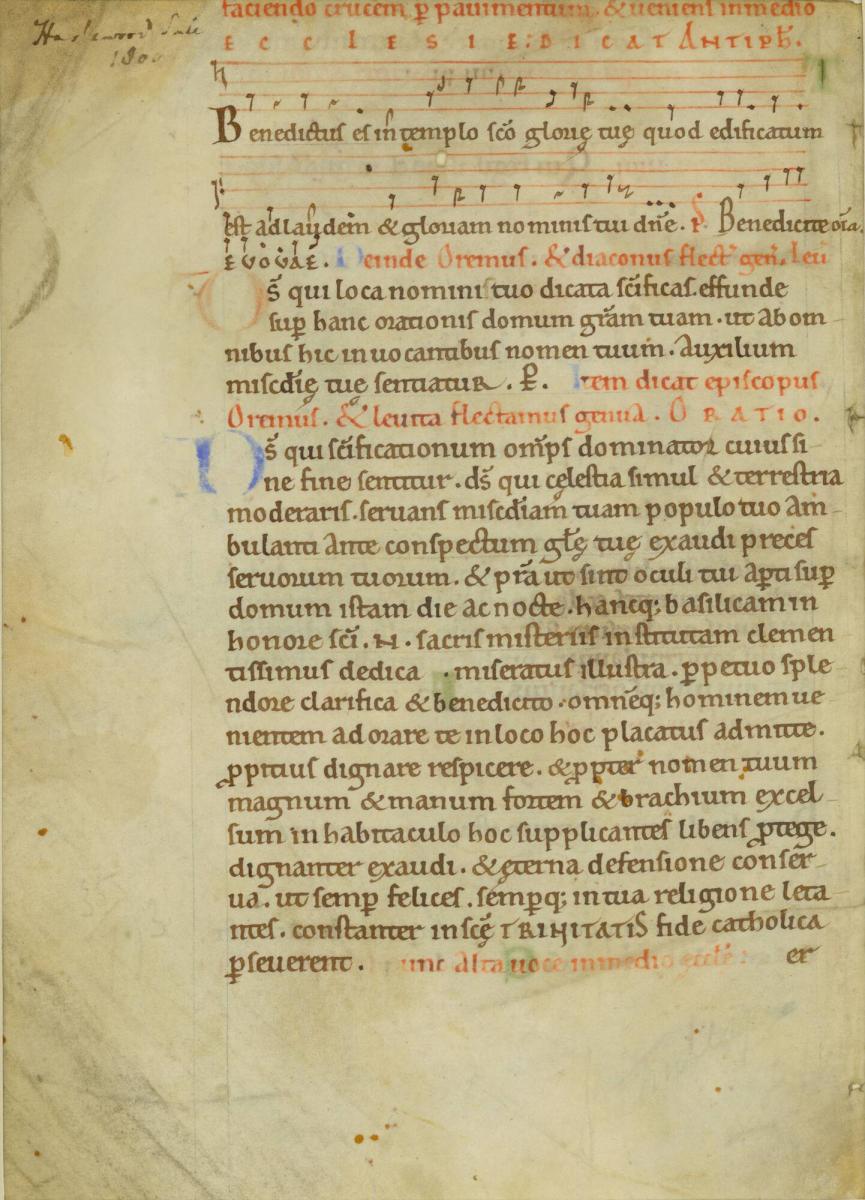 Haslewood Sale
faciendo crucem p̱ pauimentum. & ueniens in medio
ECCLESIE: DICAT ANTIPH̄.
Benedictus es in templo sc̄o glorię tuę quod edificatum
est ad laudem & gloriam nominis tui dn̄e. P̄. Benedicite om̄a.
EVOVAE. Deinde Oremus. & diaconus flect̄ gen̄. Leū
Ds̄ qui loca nomini tuo dicata sc̄ificas. effunde
sup̱ hanc orationis domum gr̄am tuam. ut ab om
nibus hic inuocantibus nomen tuum. Auxilium
misc̄dię tuę sentiatur. P̱. Item dicat episcopus
Oremus. & leuita flectamus genua. ORATIO.
Ds̄ qui sc̄ificationum om̄ps dominator cuius si
ne fine sentitur. ds̄ qui cęlestia simul & terrestria
moderaris. seruans misc̄diam tuam populo tuo am
bulanti ante conspectum gl̄ę tuę exaudi preces
seruorum tuorum. & p̄ra ut sint oculi tui ap̱ti sup̱
domum istam die ac nocte. hancq; basilicam in
honore sc̄i. N. sacris misteriis institutam clemen
tissimus dedica . miseratus illustra. p̱petuo sple
ndore clarifica & benedicito. omnēq; hominem ue
nientem adorare te in loco hoc placatus admitte.
ꝓpitius dignare respicere. & ꝓpter nomen tuum
magnum & manum fortem & brachium excel
sum in habitaculo hoc supplicantes libens ꝓtege.
dignanter exaudi. & ęterna defensione conser
ua. ut semp̱ felices. semp̱q; in tua religione leta
ntes. constanter in sc̄ę TRINITATIS fide catholica
p̱seuerent. unc Alta uoce in medio eccl̄e: er